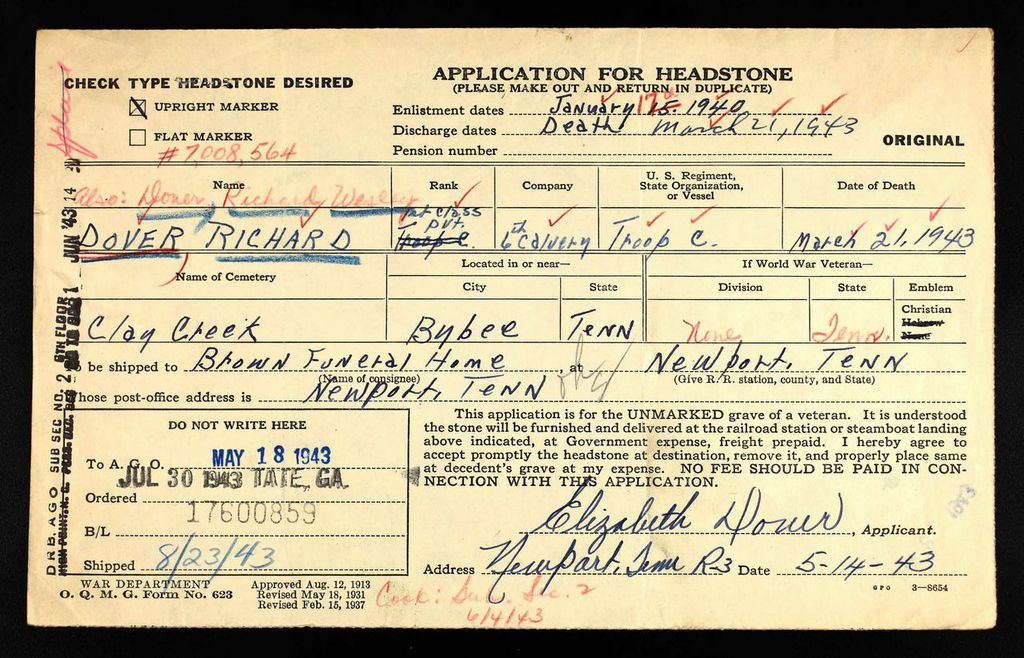 CHECK TYPE HEADSTONE DESIRED
UPRIGHT MARKER
FLAT MARKER
#7,008,564
APPLICATION FOR HEADSTONE
(PLEASE MAKE OUT AND RETURN IN DUPLICATE)
Enlistment dates January 17 15. 1940
Discharge dates Death March 21, 1943
Pension number
ORIGINAL
Name
Rank
Company
U. S. Regiment, State Organization, or Vessel
Date of Death
Also: Dover, Richard Wesley
DOVER RICHARD
Pvt. Class
Pvt.
Troop C.
6th Calvery
Troop C.
March 21, 1943
Name of Cemetery
Located in or near—
If World War Veteran—
City
State
Division
State
Emblem
Clay Creek
Bybee
TENN
None
Tenn.
Christian
Hebrew
None
be shipped to Brown Funeral Home, at Newport, TENN
(Name of consignee)
(Give R. R. station, county, and State)
hose post-office address is Newport, TENN
DO NOT WRITE HERE
To A. G. O. MAY 18 1943
JUL 30 1943 TATE, GA.
Ordered
17600859
B/L
Shipped 8/23/43
This application is for the UNMARKED grave of a veteran. It is understood
the stone will be furnished and delivered at the railroad station or steamboat landing
above indicated, at Government expense, freight prepaid. I hereby agree to
accept promptly the headstone at destination, remove it, and properly place same
at decedent's grave at my expense. NO FEE SHOULD BE PAID IN CON-
NECTION WITH THIS APPLICATION.
Elizabeth Dover, Applicant.
Address Newport, Tenn R3 Date 5-14-43
WAR DEPARTMENT
O. Q. M. G. Form No. 623
Approved Aug. 12, 1913
Revised May 18, 1931
Revised Feb. 15, 1937
Sec. 2
6/4/43
GPO 3—8654
DRB AGO SUB SEC NO. 2 6TH FLOOR
JUN '43 14